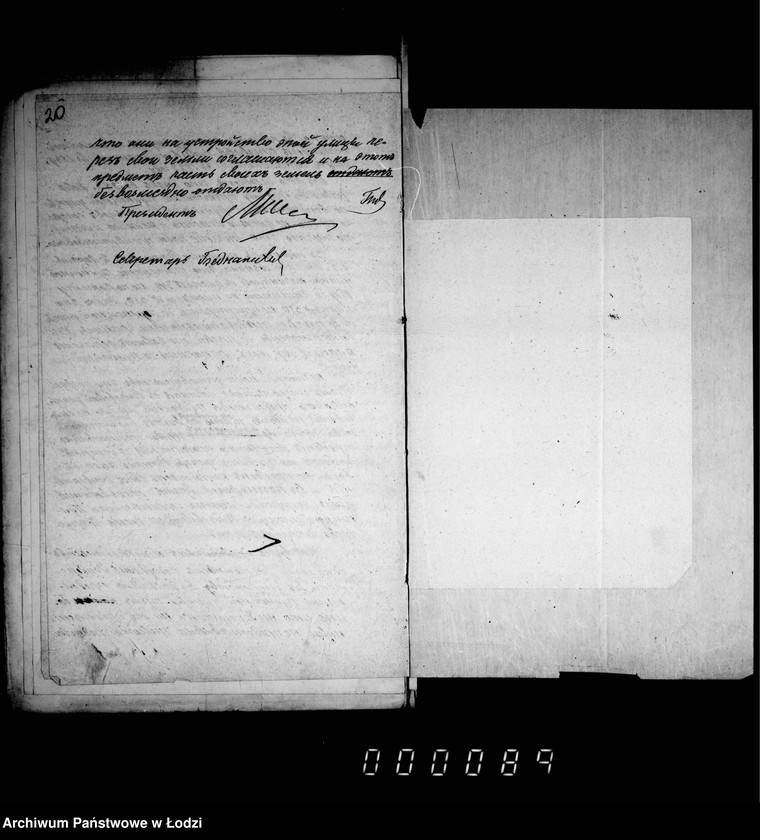 20
что они на устройство этой улицы че-
резъ свои земли соглашаются и на этотъ
предметъ часть своихъ земель отдаютъ
безвозмездно отдаютъ
Президентъ
Секретарь
000089
Archiwum Państwowe w Łodzi